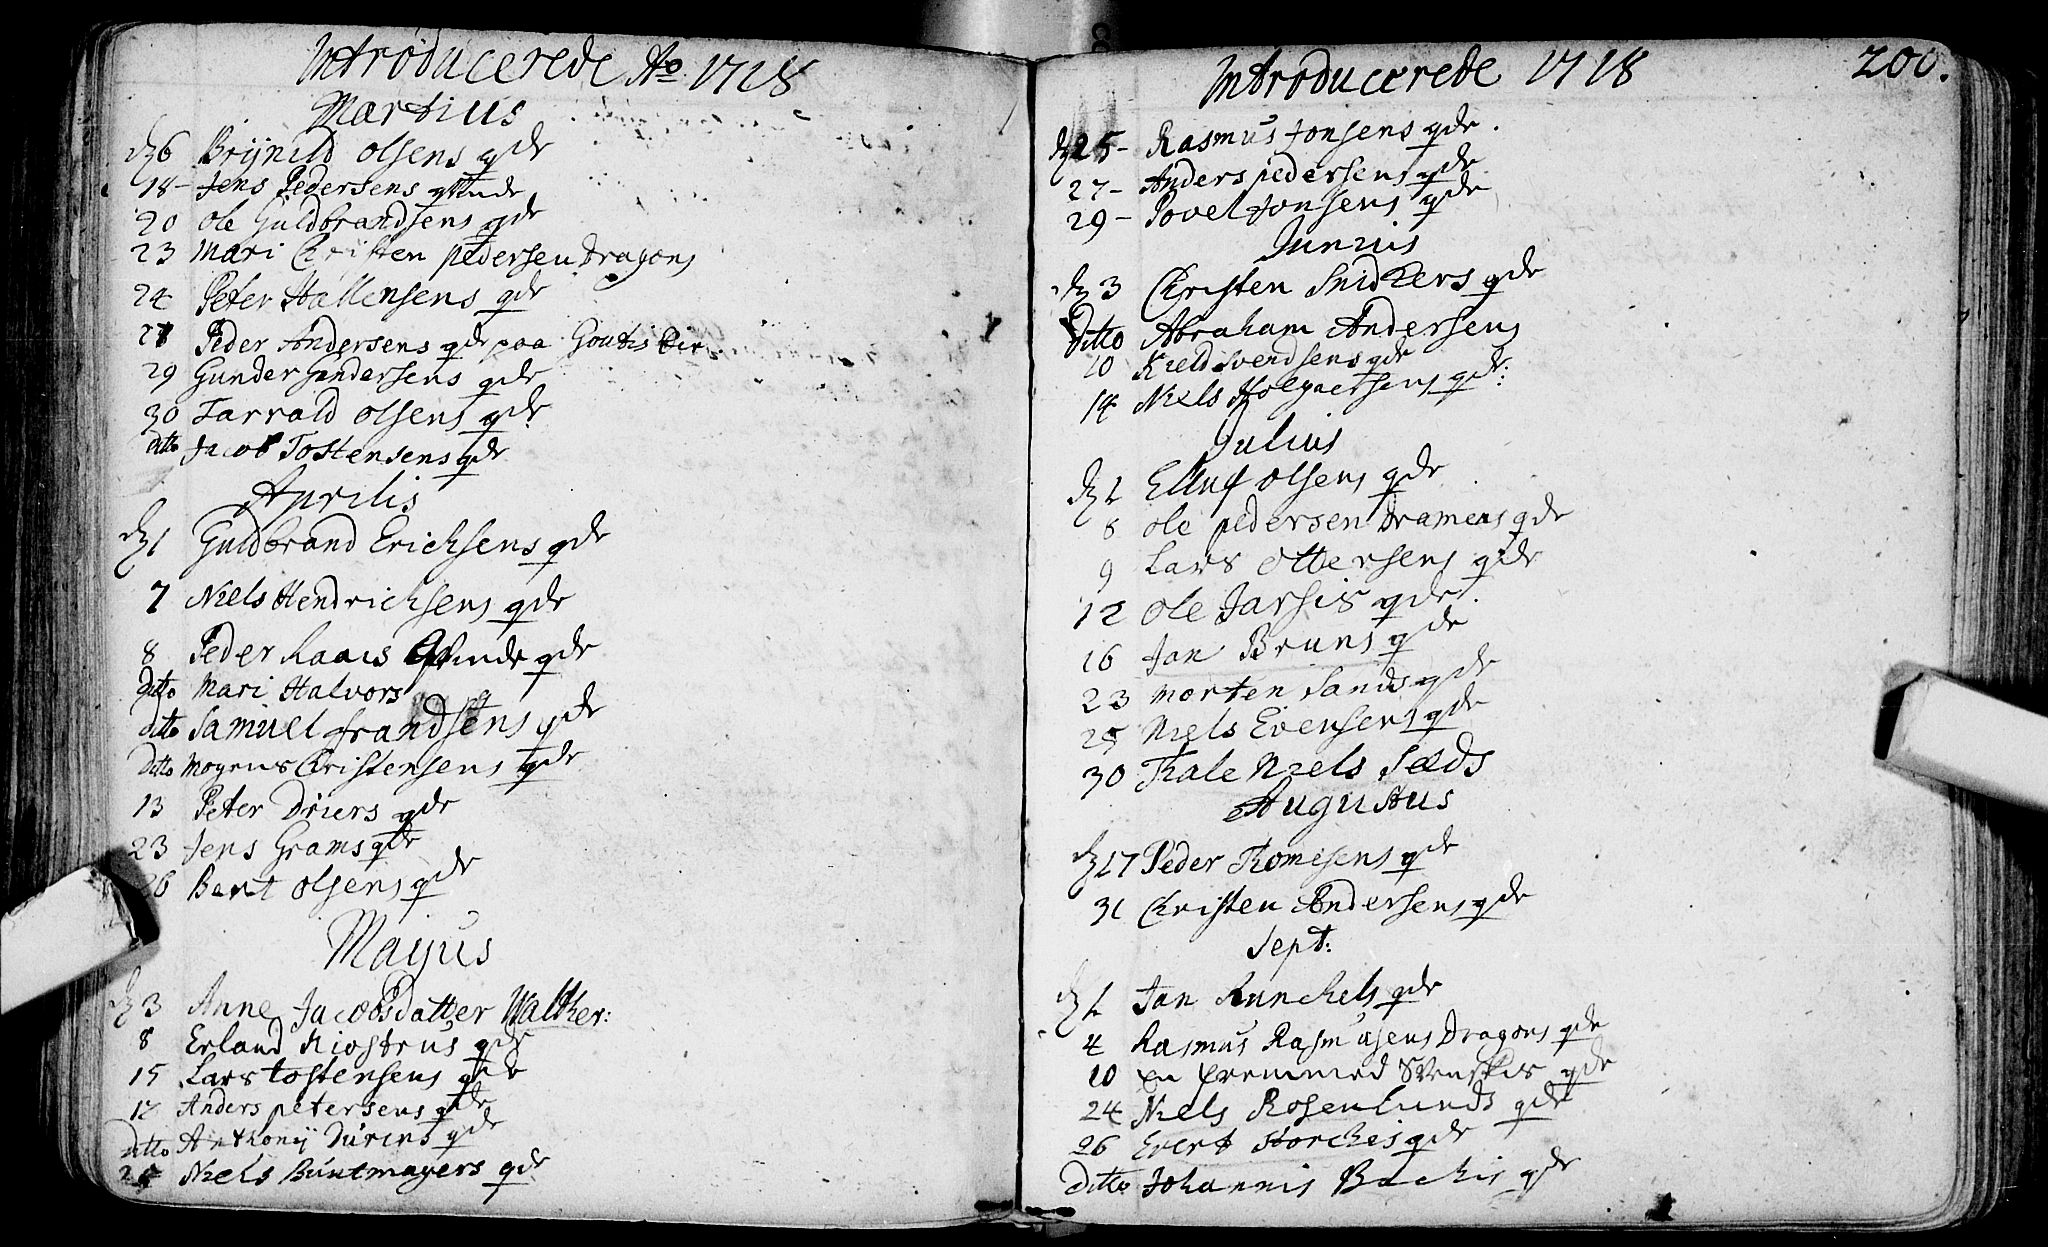 Introducerede Ao 1718
Martius
d 6 Brynild Olsens qde
18 - Jens Pedersens qvinde
20 Ole Guldbrandsens qde
23 Mari Christen pedersen Dragons
24 Peter Hallensens qde
27 Peder Andersens qde paa
29 Gunder Gundersens qde
30 Tarrald Olsens qde
ditto Jacob Tostensens qde
Aprilis
d 1 Guldbrand Erichsens qde
7 Niels Hendrichsens qde
8 Peder qde
Ditto Mari Halvors
ditto Samuel frandsens qde
Ditto Mogens Christensens qde
13 Peter Driers qde
23 Jens Grams qde
26 Bent Olsens qde
Majus
d 3 Anne Jacobsdatter Walther:
8 Erland qde
15 Lars tostensens qde
Anders petersens qde
ditto Anthonij Dúrens qde
Niels Búntmagers qde
Introducerede 1718 200.
d 25 - Rasmus Jonsens qde.
27 - Anders pedersens qde
29 - Povel Jonsens qde
Junius
d 3 Christen Snidkers qde
Ditto Abraham Andersens
10 Kield Svendsens qde
14 Niels qde:
Julius
d 2 Elluf Olsens qde
8 Ole pedersen qde
9 Lars Ottersens qde
12 Ole qde.
16 Jan Bruns qde
23 Morten Sands qde
25 Niels Evensens qde
30 Thale Niels
Augustus
d 17 Peder Thomesens qde
31 Christen Andersens qde
Sept:
d 2 Jan Runchels qde
4 Rasmus Rasmusens Dragons qde
10 En fremmed Svenskis qde
24 Niels Rosenlunds qde
26 Evert Storchis qde
Ditto Johannis Bachis qde